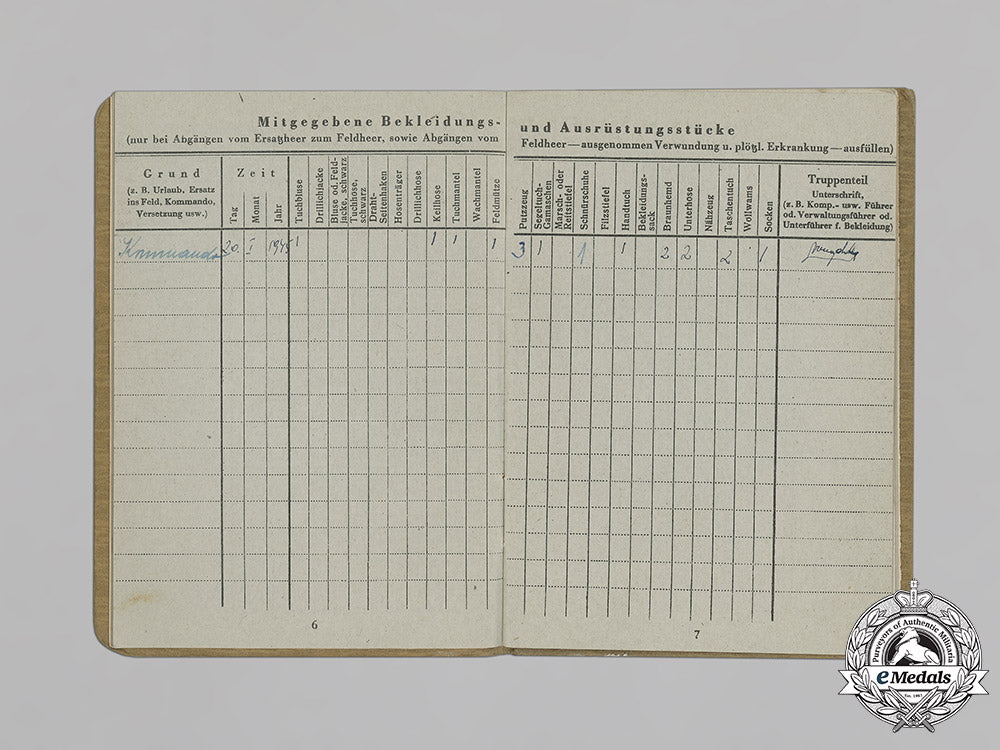 Mitgegebene Bekleidungs-
(nur bei Abgängen vom Ersatzheer zum Feldheer, sowie Abgängen vom
Grund
(z. B. Urlaub, Ersatz
ins Feld, Kommando,
Versetzung usw.)
Zeit
Tag
Monat
Jahr
Tuchbluse
Drillichjacke
Bluse od. Feld-
jacke, schwarz
Tuchhose,
schwarz
Draht-
Seitenhaken
Hosenträger
Drillichhose
Keilhose
Tuchmantel
Wachmantel
Feldmütze
Kommando 20. I 1945 1 1 1 1
6
und Ausrüstungsstücke
Feldheer — ausgenommen Verwundung u. plötzl. Erkrankung — ausfüllen)
Putzzeug
Segeltuch-
Gamaschen
Marsch- oder
Reitstiefel
Schnürschuhe
Filzstiefel
Handtuch
Bekleidungs-
sack
Braunhemd
Unterhose
Nähzeug
Taschentuch
Wollwams
Socken
Truppenteil
Unterschrift,
(z. B. Komp.- usw. Führer
od. Verwaltungsführer od.
Unterführer f. Bekleidung)
3 1 1 1 2 2 2 1
7
Purveyors of Authentic Militaria
eMedals